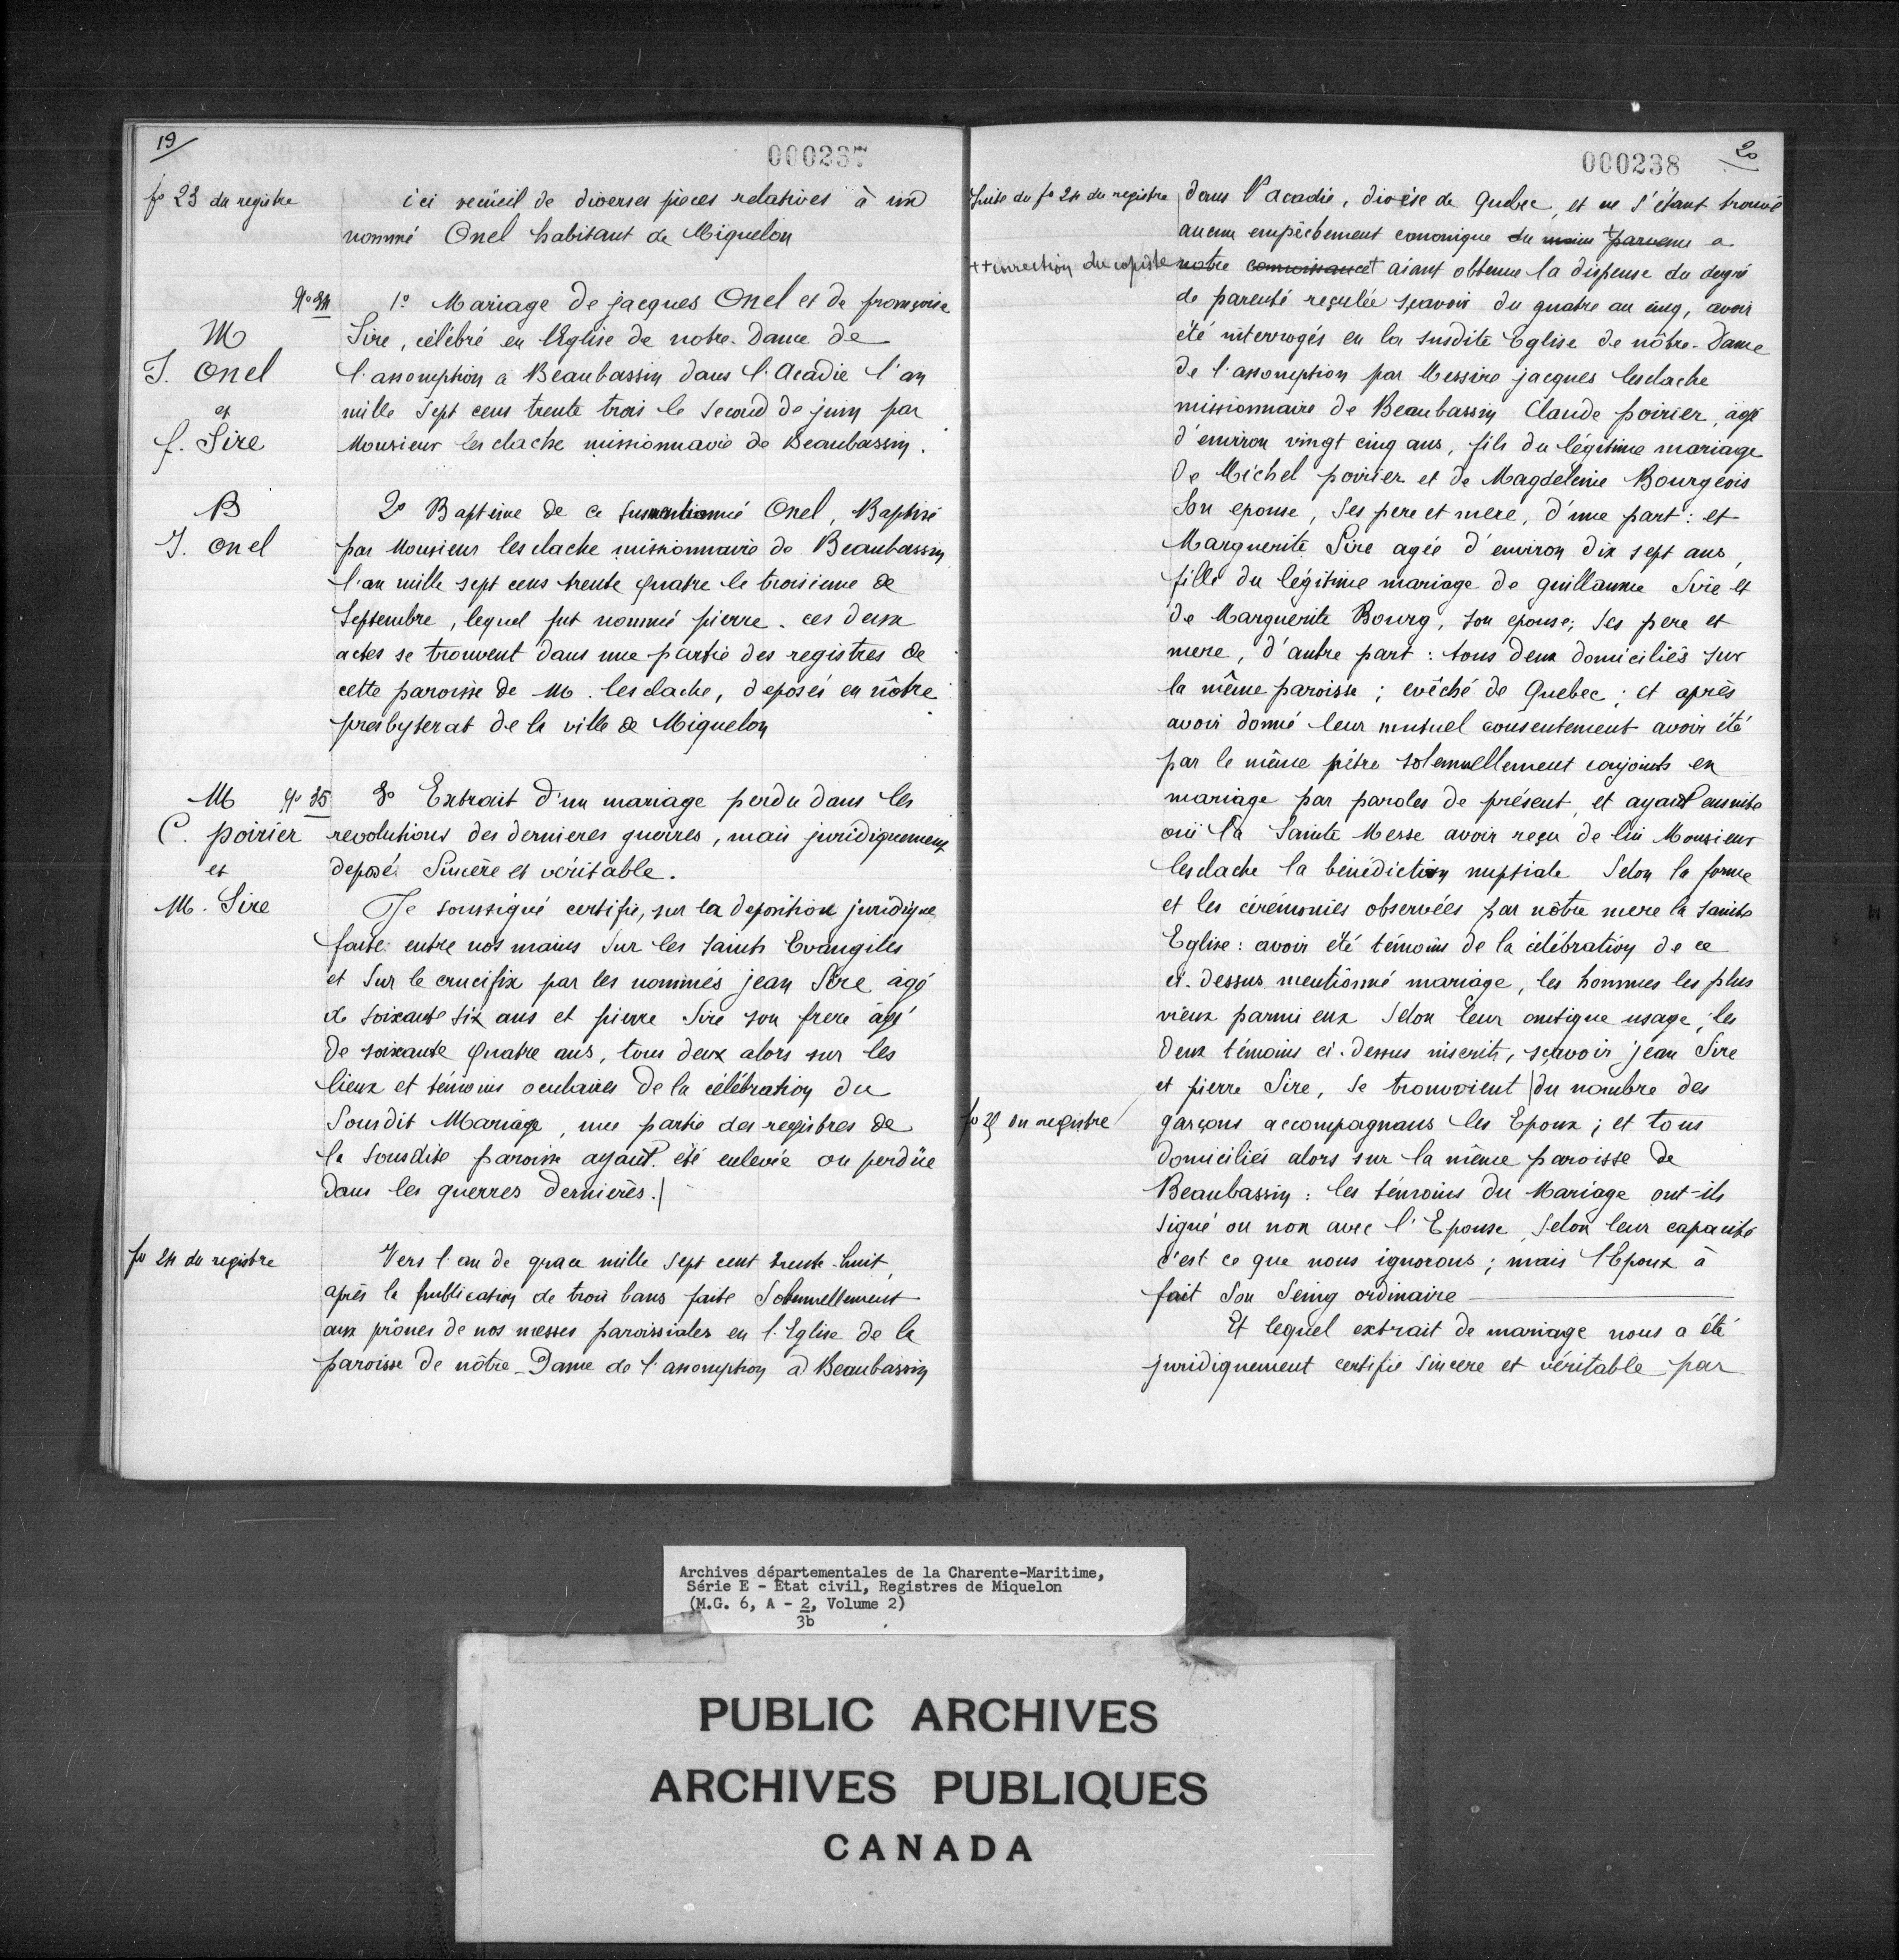 19
000237
fo 23 du registre
ici recüeil de diverses pieces relatives à un
nommé Onel habitant de Miquelon
No 34
1o Mariage de jacques Onel et de françoise
M
Sire, célébré en l'Eglise de notre-Dame de
J. Onel
l'assomption a Beaubassin dans l'Acadie l'an
et
mille Sept cens trente trois le Second de juin par
f. Sire
Monsieur lesclache missionnaire de Beaubassin.
B
2o Baptême de ce susmentionné Onel, Baptisé
J. Onel
par Monsieur lesclache missionnaire de Beaubassin
l'an mille sept cens trente quatre le troisieme de
Septembre, lequel fut nommé pierre. ces deux
actes se trouvent dans une partie des registres de
cette paroisse de M. lesclache, deposés en nôtre
presbyterat de la ville de Miquelon
M No 35
3o Extrait d'un mariage perdu dans les
C. poirier
revolutions des dernieres guerres, mais juridiquement
et
deposé Sincère et véritable.
M. Sire
Je soussigné certifie, sur la deposition juridique
faite entre nos mains Sur les saints Evangiles
et Sur le crucifix par les nommés jean Sire âgé
de soixante six ans et pierre Sire son frere âgé
de soixante Quatre ans, tous deux alors sur les
lieux et témoins oculaires de la célébration du
Sousdit Mariage, une partie des registres de
la sousdite paroisse ayant été enlevée ou perdüe
Dans les guerres dernierès.
fo 24 du registre
Vers l'an de grace mille Sept cent trente-huit,
après la publication de trois bans faite Solemnellement
aux prônes de nos messes paroissiales en l'Eglise de la
paroisse de nôtre-Dame de l'assomption a Beaubassin
000238
20
Suite du fo 24 du registre
dans l'acadie, diocèse de Quebec, et ne s'étant trouvé
aucun empêchement canonique du moins parvenu a
++ correction du copiste
notre connoissance et aiant obtenue la dispense du degré
de parenté reculée sçavoir du quatre au cinq, avoir
été interrogés en la susdite Eglise de nôtre-Dame
de l'assomption par Messire jacques lesclache
missionnaire de Beaubassin Claude poirier, agé
d'environ vingt cinq ans, fils du légitime mariage
de Michel poirier et de Magdeleine Bourgeois
Son epouse, Ses pere et mere, d'une part : et
Marguerite Sire agée d'environ dix sept ans,
fille du légitime mariage de guillaume Sire et
de Marguerite Bourg, son epouse, ses pere et
mere, d'autre part : tous deux domiciliés sur
la même paroisse ; evêché de Quebec ; et après
avoir donné leur mutuel consentement avoir été
par le même prêtre solemnellement conjoints en
mariage par paroles de présent, et ayant ensuite
oüi la Sainte Messe avoir reçu de lui Monsieur
lesclache la bénédiction nuptiale Selon la forme
et les cérémonies observées par nôtre mere la sainte
Eglise : avoir été témoins de la célébration de ce
ci-dessus mentionné mariage, les hommes les plus
vieux parmi eux Selon leur antique usage, les
deux témoins ci-dessus inscrits, sçavoir jean Sire
et pierre Sire, se trouvoient du nombre des
fo 25 du registre
garçons accompagnans les Epoux ; et tous
domiciliés alors sur la même paroisse de
Beaubassin : les témoins du Mariage ont-ils
signé ou non avec l'Epouse, selon leur capacité
c'est ce que nous ignorons ; mais l'Epoux à
fait Son Seing ordinaire
Et lequel extrait de mariage nous a été
juridiquement certifié sincere et véritable par
Archives départementales de la Charente-Maritime,
Série E - Etat civil, Registres de Miquelon
(M.G. 6, A - 2, Volume 2)
3b
PUBLIC ARCHIVES
ARCHIVES PUBLIQUES
CANADA